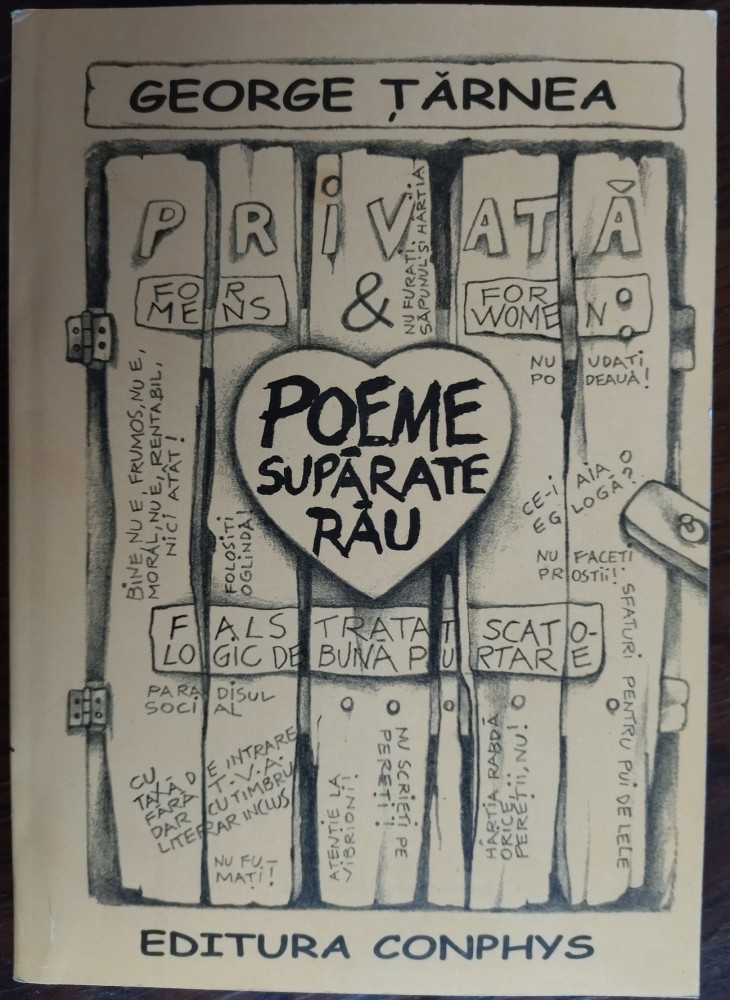 GEORGE ȚĂRNEA
PRiVATĂ
FOR
MENS
&
NU FURAȚI
SĂPUNUL ȘI HÂRTIA!
FOR
WOMEN
NU UDAȚI
PODEAUA!
BINE, NU E, FRUMOS, NU E,
MORAL, NU E, RENTABIL,
NICI ATÂT!
FOLOSIȚI
OGLINDA!
POEME
SUPĂRATE
RĂU
CE-I AIA
EGLOGĂ?
NU FACEȚI
PROSTII!
SFATURI PENTRU PUI DE LELE
FALS TRATAT SCATO-
LOGIC DE BUNĂ PURTARE
PARADISUL
SOCIAL
CU O E INTRARE
TAXĂ,
FĂRĂ T.V.A.
DAR CU TIMBRU
LITERAR INCLUS
NU FU-
MAȚI!
ATENȚIE LA
VIBRIONI!
NU SCRIEȚI PE
PEREȚI!
HÂRTIA RABDĂ
ORICE,
PEREȚII, NU!
EDITURA CONPHYS